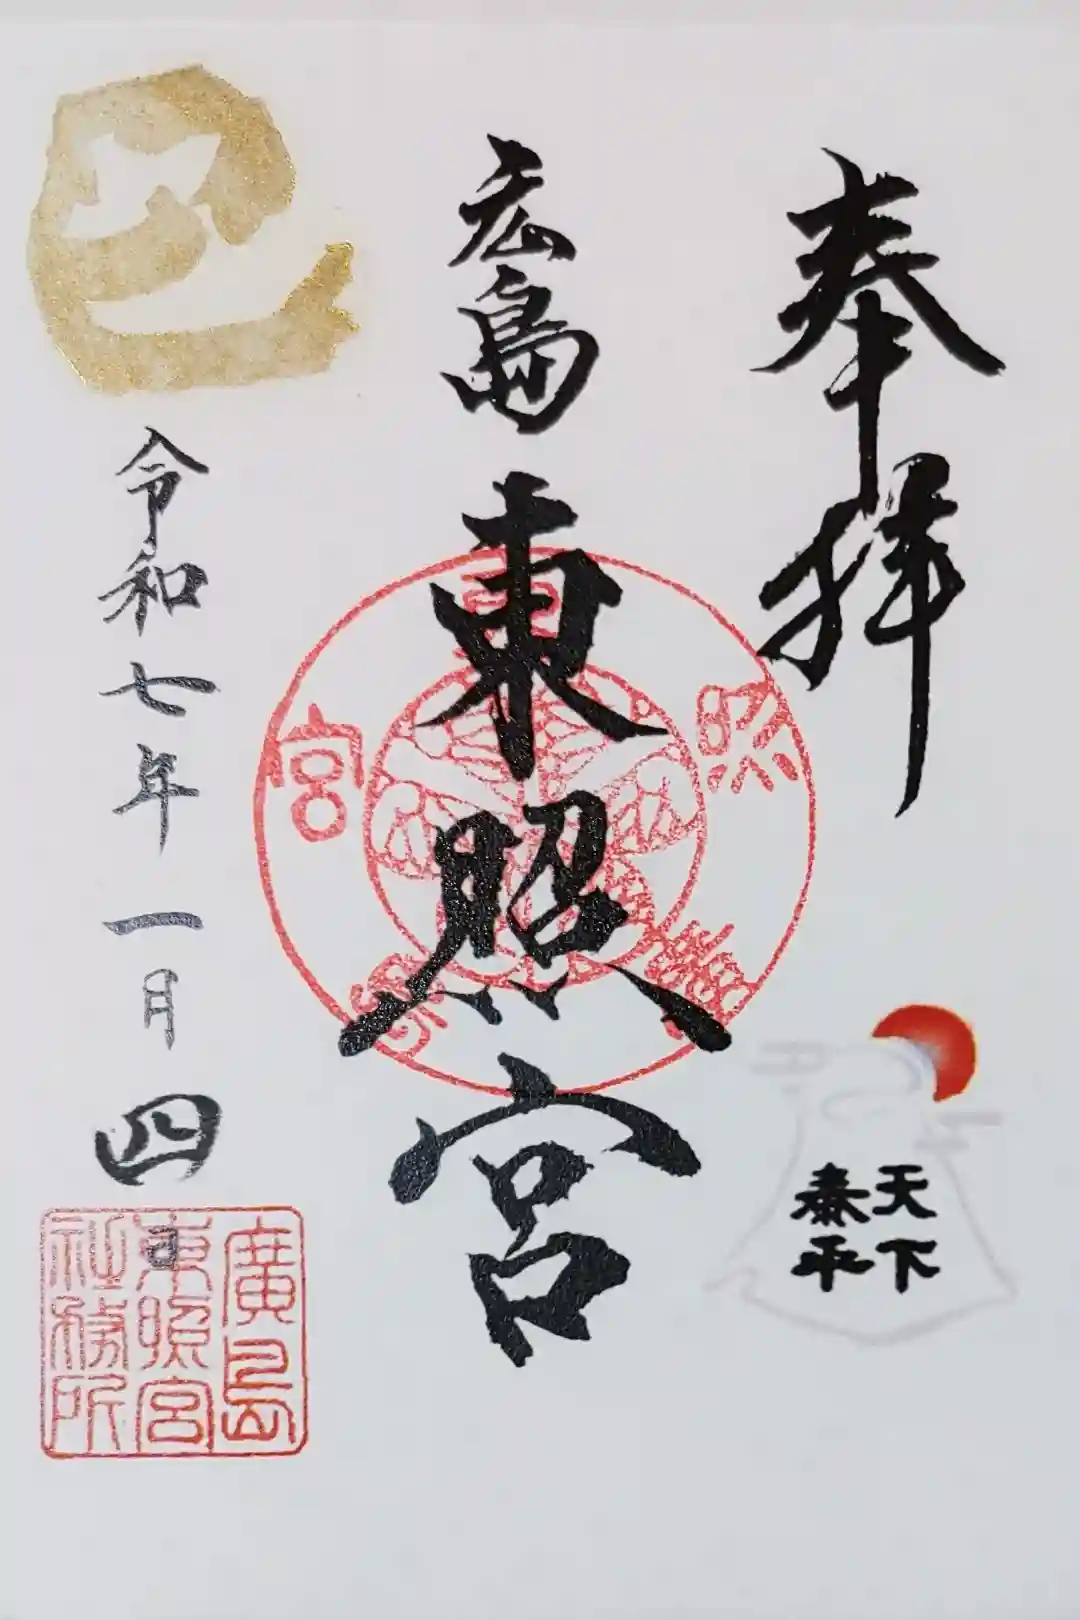 奉拝
天下
泰平
広島
東照宮
巳
令和七年一月四日
廣島
東照宮
社務所
東
照
宮